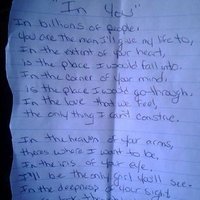 "In You"
In billions of people,
you are the man I'll give my life to,
In the extent of your heart,
is the place I would fall into.
In the corner of your mind,
Is the place I would go through.
In the love that we feel,
the only thing I can't construe.
In the heaven of your arms,
theres where I want to be,
In the iris of your eye,
I'll be the only girl you'll see.
In the deepness of your sight